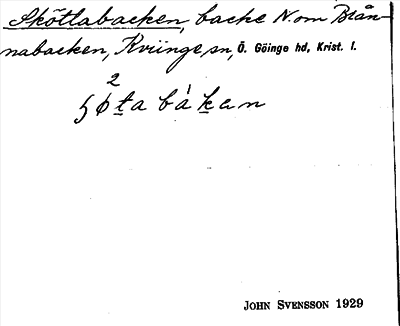 Sköttabacken, backe N. om Brån-
nabacken, Kviinge sn, Ö. Göinge hd, Krist. l.
2
ʒǿt̲a bák̲an
JOHN SVENSSON 1929